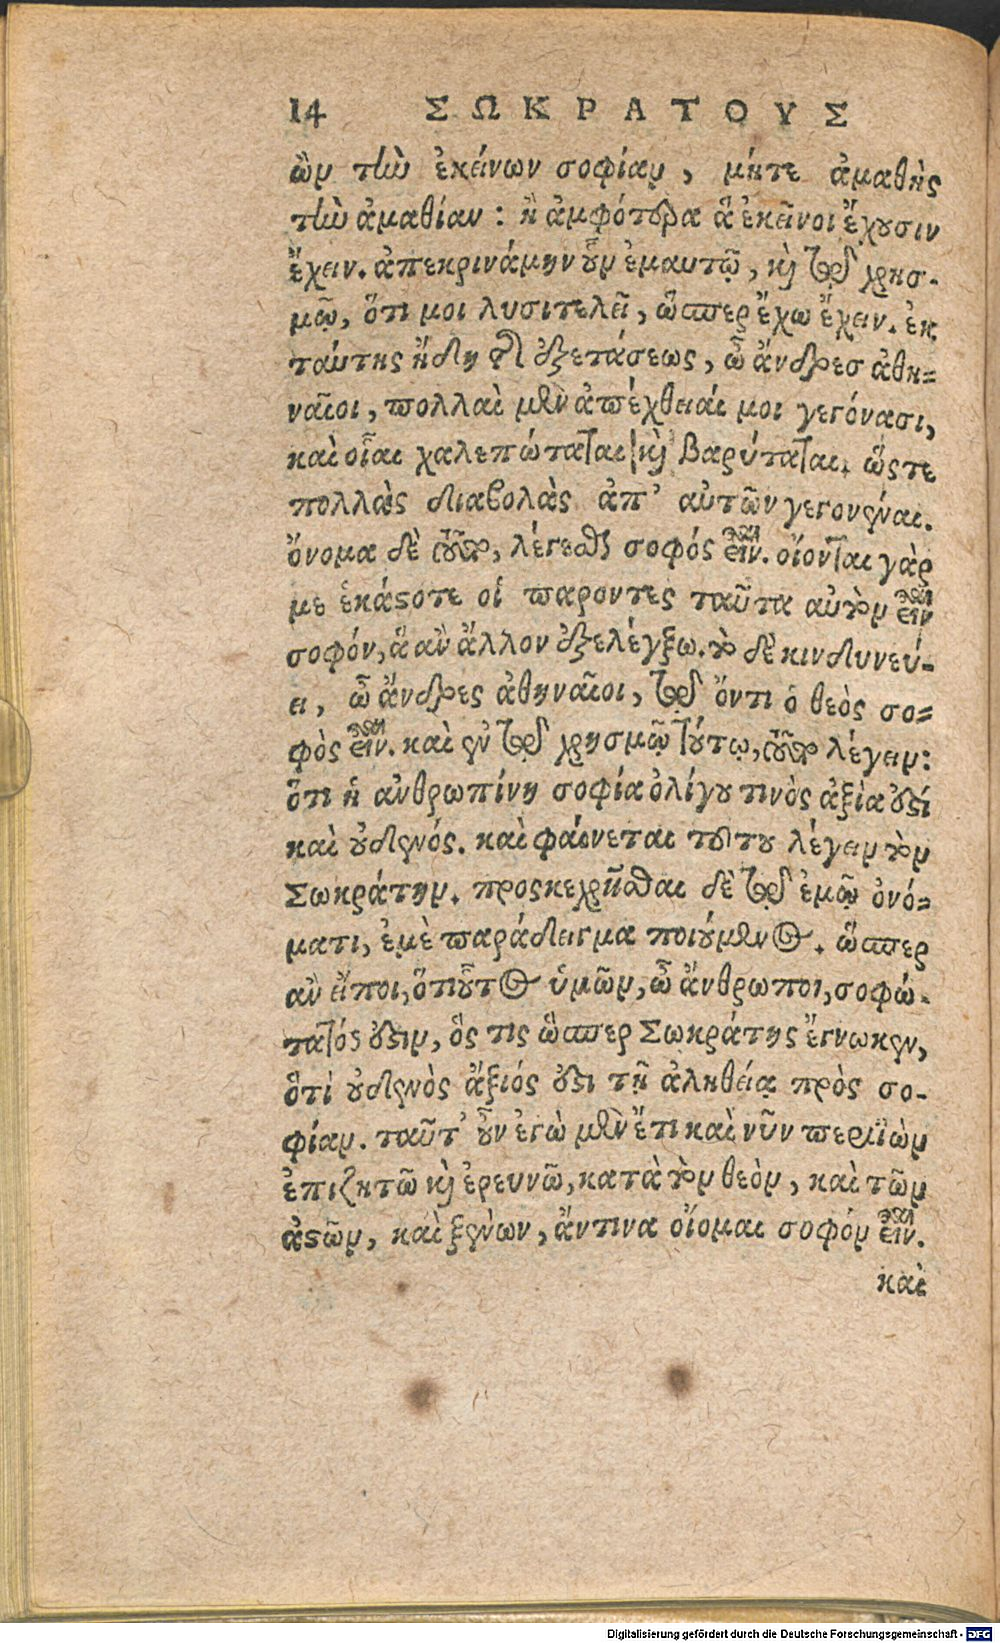 14 ΣΩΚΡΑΤΟΥΣ
ὢν τὴν ἐκείνων σοφίαν, μήτε ἀμαθὴς
τὴν ἀμαθίαν: ἢ ἀμφότερα ἃ ἐκεῖνοι ἔχουσιν
ἔχειν. ἀπεκρινάμην οὖν ἐμαυτῷ, καὶ τῷ χρησ-
μῷ, ὅτι μοι λυσιτελεῖ, ὥσπερ ἔχω ἔχειν. ἐκ
ταύτης ἤδη τῆς ἐξετάσεως, ὦ ἄνδρες ἀθη=
ναῖοι, πολλαὶ μὲν ἀπέχθειαί μοι γεγόνασι,
καὶ οἷαι χαλεπώταται καὶ βαρύταται. ὥςτε
πολλὰς διαβολὰς ἀπ' αὐτῶν γεγονέναι.
ὄνομα δὲ τοῦτο, λέγεσθαι σοφός εἶναι. οἴονται γὰρ
με ἑκάστοτε οἱ παροντες ταῦτα αὐτὸν εἶναι
σοφόν, ἃ ἂν ἄλλον ἐξελέγξω. τὸ δὲ κινδυνεύ-
ει, ὦ ἄνδρες ἀθηναῖοι, τῷ ὄντι ὁ θεὸς σο=
φὸς εἶναι. καὶ ἐν τῷ χρησμῷ τούτῳ, τοῦτο λέγειν:
ὅτι ἡ ἀνθρωπίνη σοφία ὀλίγου τινὸς ἀξία ἐστί
καὶ οὐδενός. καὶ φαίνεται τοῦτου λέγειν τὸν
Σωκράτην. προςκεχρῆσθαι δὲ τῷ ἐμῷ ὀνό=
ματι, ἐμὲ παράδειγμα ποιούμενος. ὥσπερ
ἂν εἴποι, ὅτι οὗτος ὑμῶν, ὦ ἄνθρωποι, σοφώ-
τατός ἐστιν, ὅς τις ὥσπερ Σωκράτης ἔγνωκεν,
ὅτι οὐδενὸς ἄξιός ἐστι τῇ ἀληθείᾳ πρὸς σο-
φίαν. ταῦτ' οὖν ἐγὼ μὲν ἔτι καὶ νῦν περιϊὼν
ἐπιζητῶ καὶ ἐρευνῶ, κατὰ τὸν θεὸν, καὶ τῶν
ἀστῶν, καὶ ξένων, ἄντινα οἴομαι σοφόν εἶναι.
καὶ
Digitalisierung gefördert durch die Deutsche Forschungsgemeinschaft - DFG